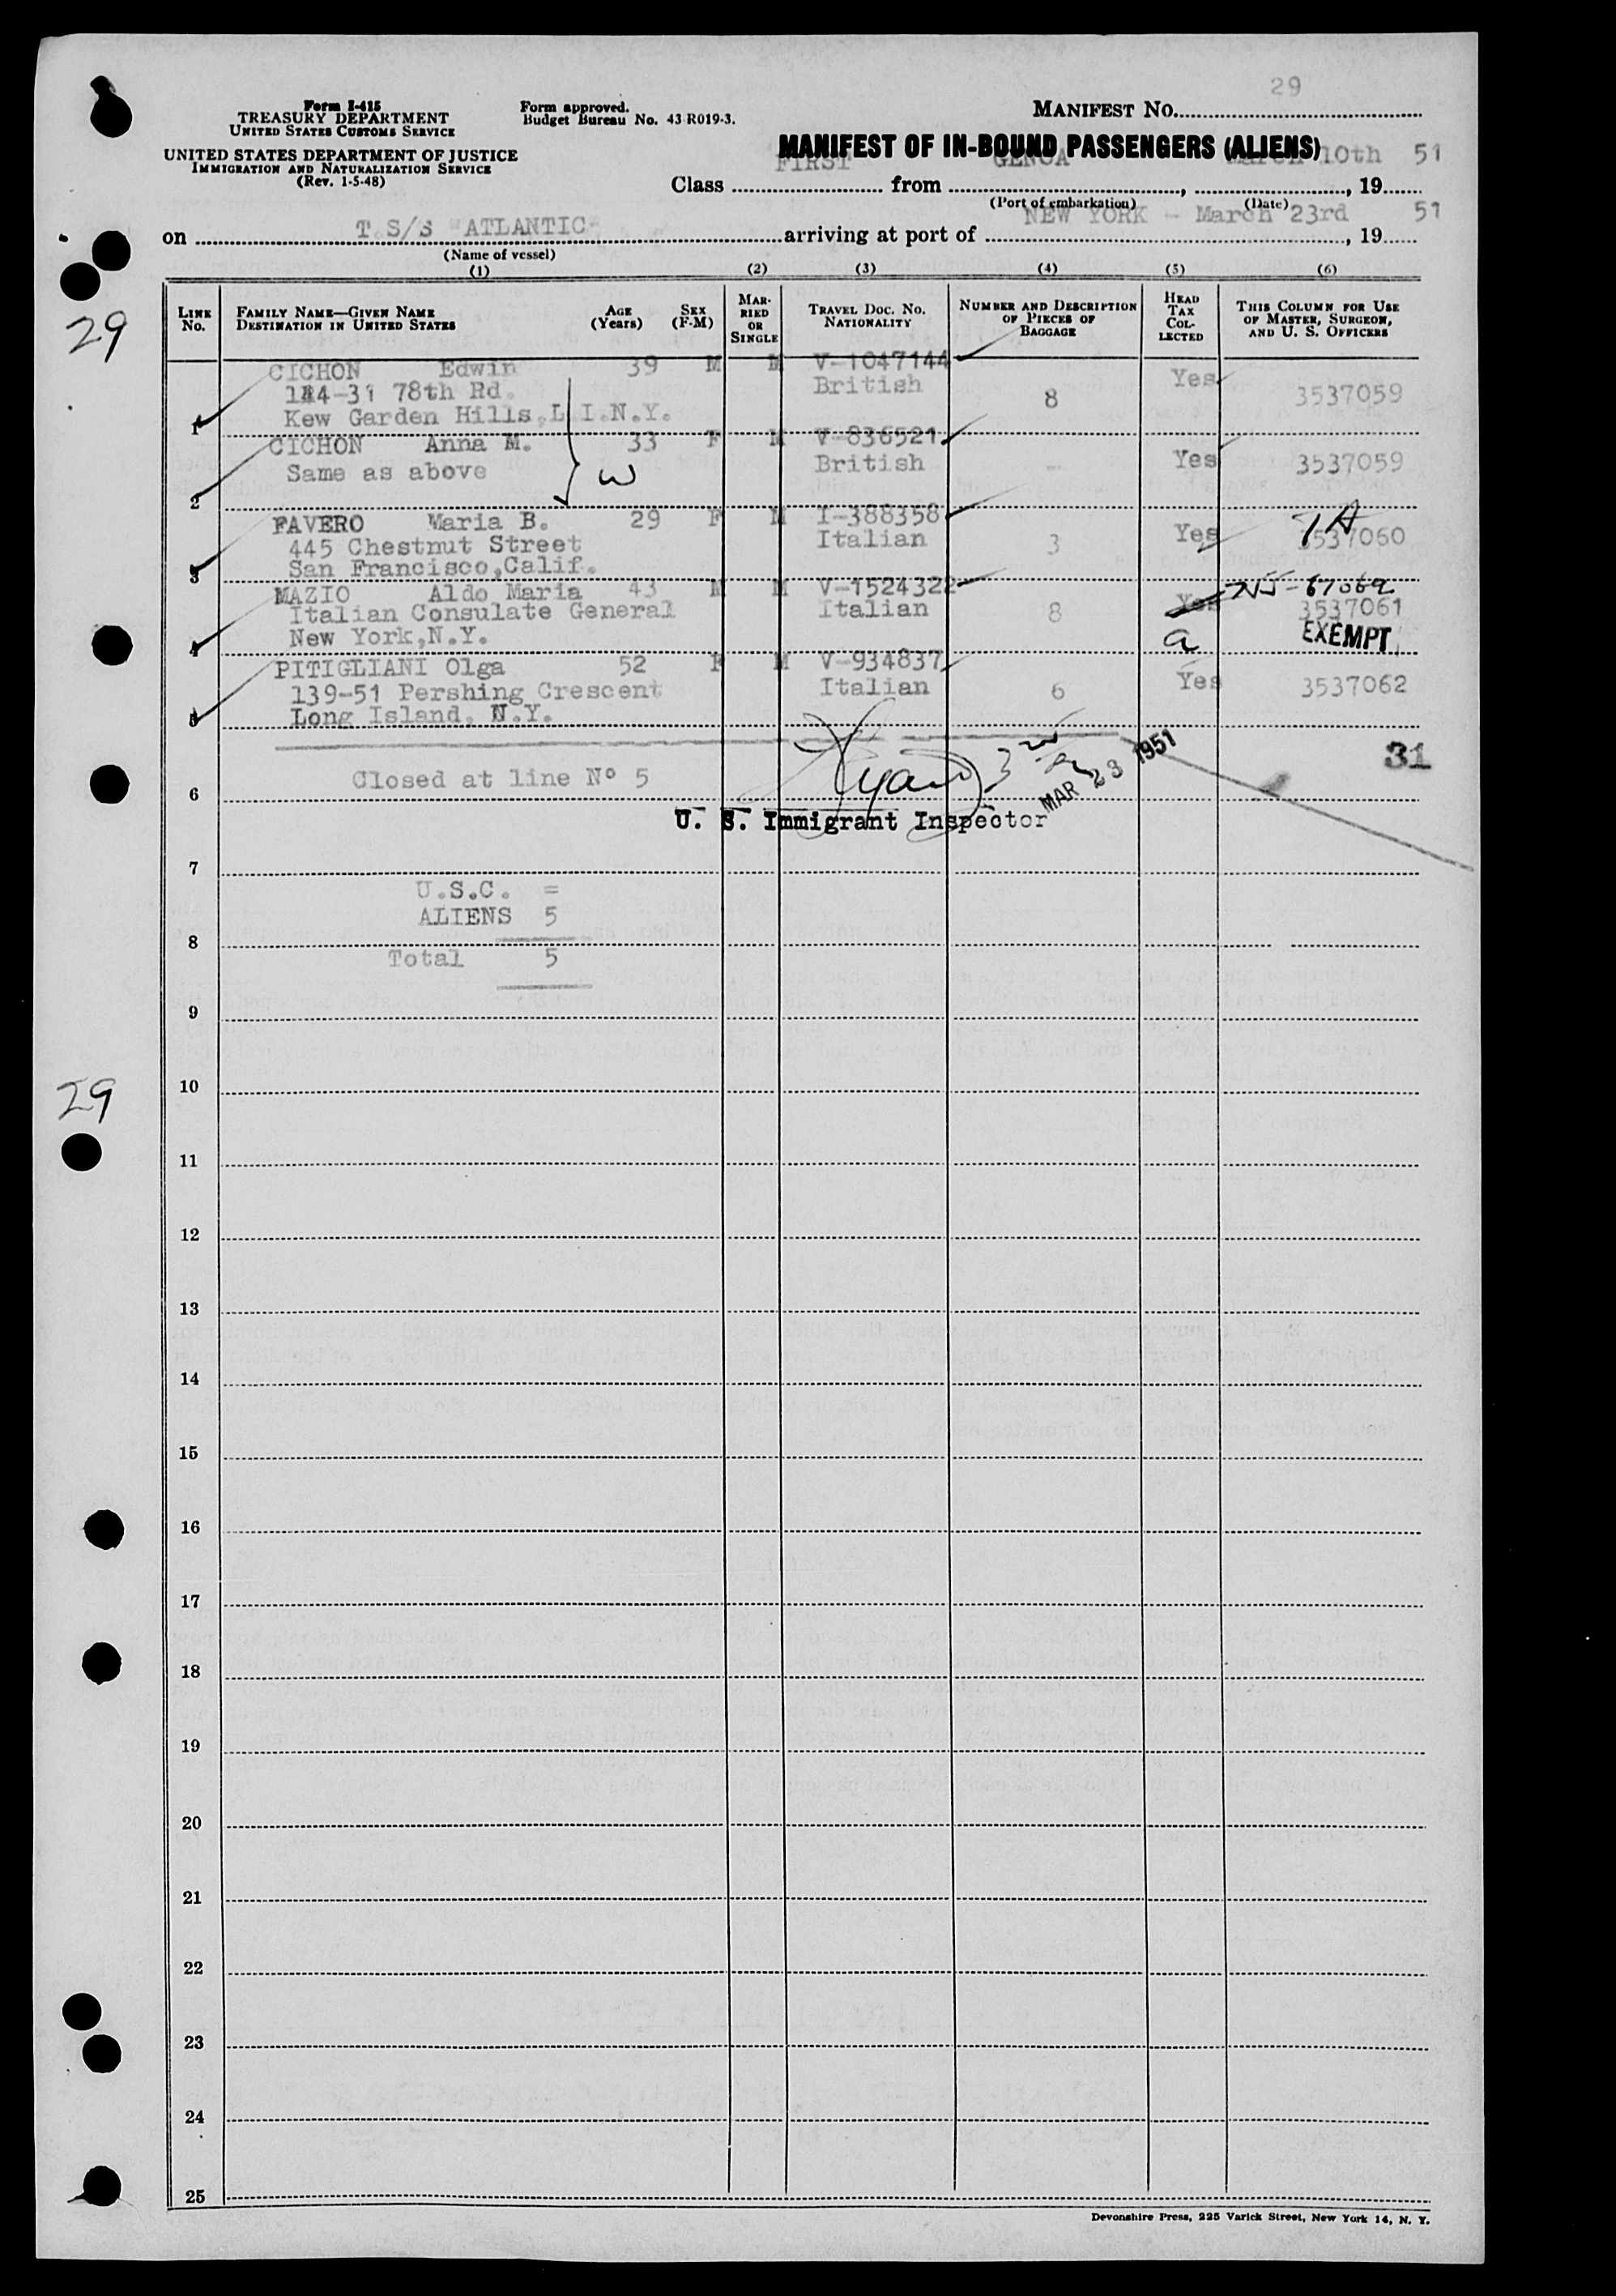 29
Form I-415
TREASURY DEPARTMENT
UNITED STATES CUSTOMS SERVICE
UNITED STATES DEPARTMENT OF JUSTICE
IMMIGRATION AND NATURALIZATION SERVICE
(Rev. 1-5-48)
Form approved.
Budget Bureau No. 43-R019-3.
MANIFEST No.
MANIFEST OF IN-BOUND PASSENGERS (ALIENS)
Class FIRST from GENOA, March 10th, 19 51
(Port of embarkation) (Date)
on T.S/S ATLANTIC arriving at port of NEW YORK - March 23rd, 19 51
(Name of vessel)
(1) (2) (3) (4) (5) (6)
LINE No. FAMILY NAME—GIVEN NAME DESTINATION IN UNITED STATES AGE (Years) SEX (F-M) MARRIED OR SINGLE TRAVEL DOC. No. NATIONALITY NUMBER AND DESCRIPTION OF PIECES OF BAGGAGE HEAD TAX COLLECTED THIS COLUMN FOR USE OF MASTER, SURGEON, AND U. S. OFFICERS
29
CICHON Edwin 39 M M V-1047144
144-31 78th Rd. British 8 Yes 3537059
1 Kew Garden Hills,L.I.N.Y.
CICHON Anna M. 33 F M V-836521
Same as above W British - Yes 3537059
2
FAVERO Maria B. 29 F M I-388358 TA
445 Chestnut Street Italian 3 Yes 3537060
3 San Francisco,Calif.
MAZIO Aldo Maria 43 M M V-1524322
Italian Consulate General Italian 8 Yes 3537061
4 New York,N.Y. a EXEMPT
PITIGLIANI Olga 52 F M V-934837
139-51 Pershing Crescent Italian 6 Yes 3537062
5 Long Island, N.Y.
31
MAR 23 1951
6 Closed at line Nº 5
U. S. Immigrant Inspector
7
U.S.C. =
ALIENS 5
8
Total 5
9
10
29
11
12
13
14
15
16
17
18
19
20
21
22
23
24
25
Devonshire Press, 225 Varick Street, New York 14, N. Y.